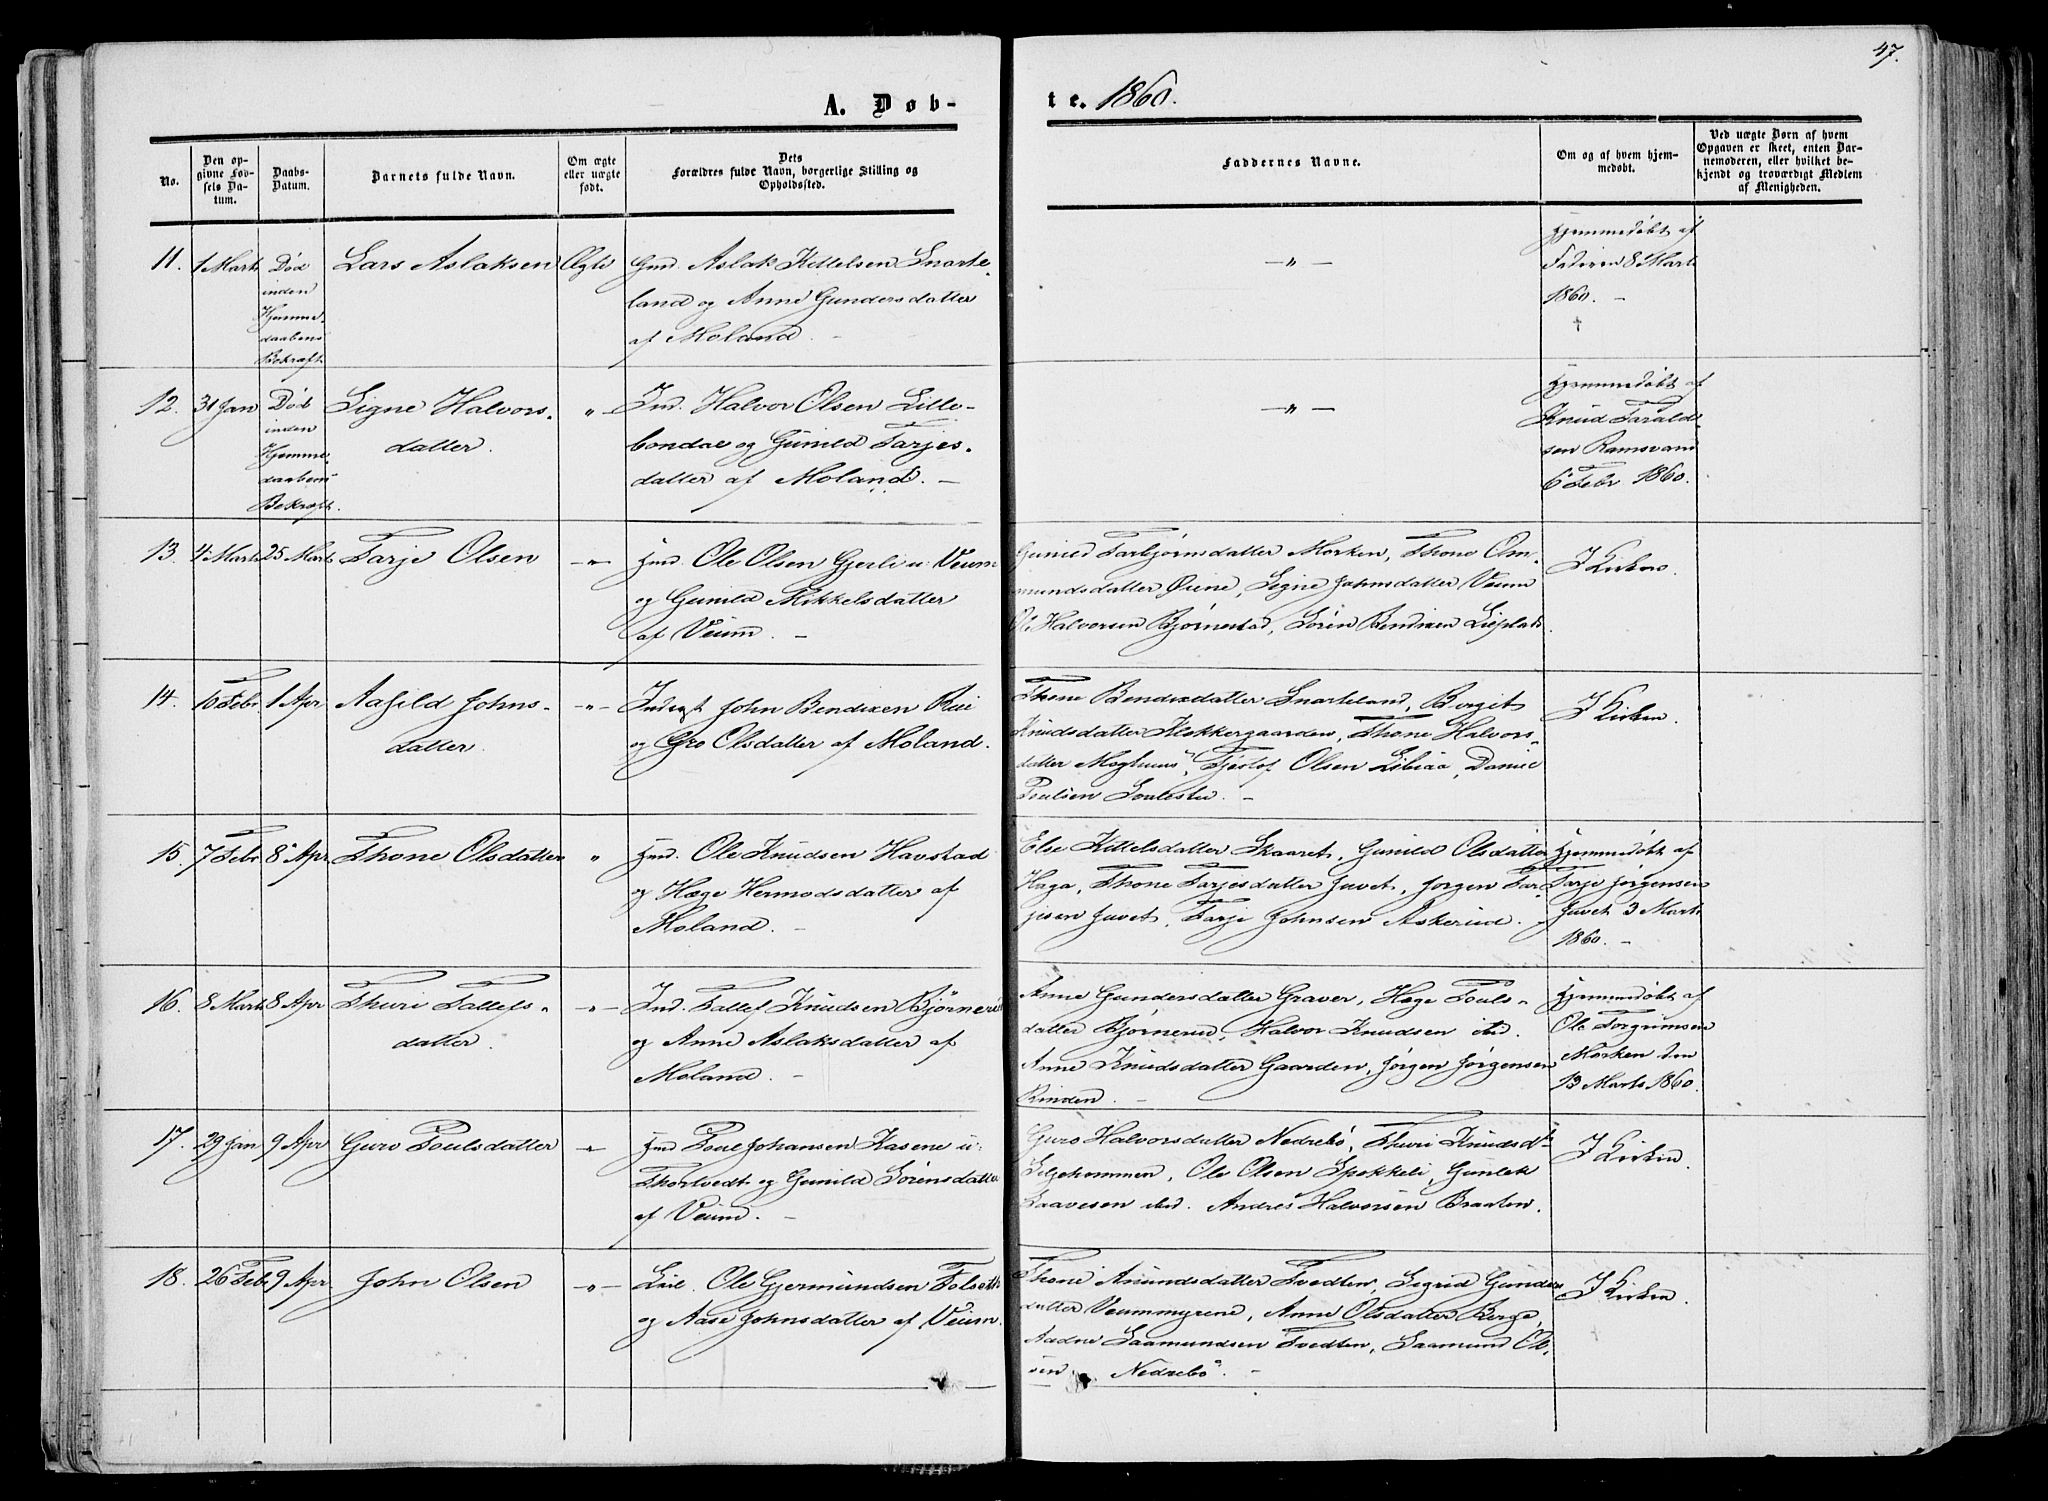 47.
A. Døb-
te. 1860.
No.
Den op-
givne Fød-
sels Da-
tum.
Daabs-
Datum.
Barnets fulde Navn.
Om ægte
eller uægte
født.
Dets
Forældres fulde Navn, borgerlige Stilling og
Opholdssted.
Faddernes Navne.
Om og af hvem hjem-
medøbt.
Ved uægte Børn af hvem
Opgaven er skeet, enten Bar-
nemoderen, eller hvilket be-
kjendt og troværdigt Medlem
af Menigheden.
11.
1 Marts
Død
inden
Hjemme-
daabens
Bekræft.
Lars Aslaksen
Ægte
Gmd. Aslak Kittelsen Snarte-
land og Anne Gundersdatter
af Moland. -
-"-
Hjemmedøbt af
Faderen 8 Marts
1860. -
†
12.
31 Jan
Død
inden
Hjemme-
daabens
Bekræft.
Signe Halvors-
datter.
-"-
Ind. Halvor Olsen Lille-
bondal og Gunild Tarjes-
datter af Moland. -
-"-
Hjemmedøbt af
Knud Tarald-
sen Ramsvand
6 Febr 1860.
13.
4 Marts
25 Marts
Tarje Olsen
-"-
Hmd. Ole Olsen Gjerli u: Veum
og Gunild Mikkelsdatter
af Veum. -
Gunild Tarbjørnsdatter Morken, Thone Om-
mundsdatter Øine, Signe Johnsdatter Veum
Ole Halvorsen Bjørnestad, Søren Bendixen Lieplads.
I Kirken.
14.
10 Febr.
1 Apr
Aasild Johns-
datter.
-"-
Inderst John Bendixen Rui
og Gro Olsdatter af Moland.
Thone Bendixdatter Snarteland, Bergit
Knudsdatter Klokkergaarden, Thone Halvors-
datter Moghuus, Tjøstof Olsen Libiaa, Daniel
Poulsen
I Kirken.
15.
7 Febr
8 Apr
Thone Olsdatter
"
Hmd. Ole Knudsen Havstad
og Hæge Hermodsdatter af
Moland. -
Else Kittelsdatter Skaaret, Gunild Olsdatter
Haga, Thone Tarjesdatter Juvet, Jørgen Tar-
jesen Juvet, Tarje Johnsen Askerud. -
Hjemmedøbt af
Tarje Jørgensen
Juvet 3 Marts
1860. -
16.
8 Marts
8 Apr
Thuri Tallefs-
datter.
-"-
Ind. Tallef Knudsen Bjørnerud
og Anne Aslaksdatter af
Moland. -
Anne Gundersdatter Graver, Hæge Pouls-
datter Bjørnerud, Halvor Knudsen ibd.
Anne Knudsdatter Gaarden, Jørgen Jørgensen
Rinden. -
Hjemmedøbt af
Ole Torgrimsen
Morken den
13 Marts 1860.
17.
29 Jan
9 Apr
Guro Poulsdatter
-"-
Hmd Poul Johansen Kasene u:
Thortvedt og Gunild Sørensdatter
af Veum. -
Guro Halvorsdatter Nedrebø, Thuri Knudsdtr
Ole Olsen Spokkeli, Gunlek
Saavesen ibd. Andres Halvorsen Braaten.
I Kirken.
18.
26 Febr
9 Apr
John Olsen
-"-
Ole Gjermundsen Folseth
og Aase Johnsdatter af Veum.
Thone Amundsdatter Tvedten, Sigrid Gunders-
datter Veummyrene, Anne Olsdatter Berge,
Aadne Saamundsen Tvedten, Saamund Ol-
sen Nedrebø. -
I Kirken.